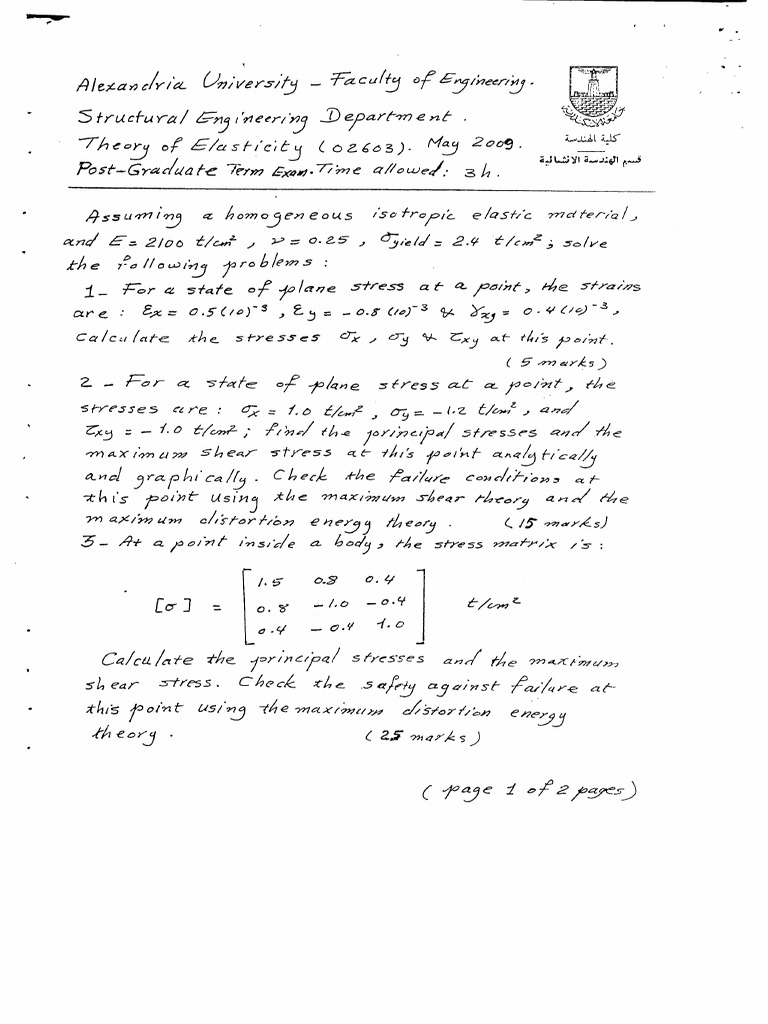 Alexandria University - Faculty of Engineering.
Structural Engineering Department.
كلية الهندسة
Theory of Elasticity (02603). May 2009.
قسم الهندسة الانشائية
Post-Graduate Term Exam. Time allowed: 3h.
Assuming a homogeneous isotropic elastic material,
and E = 2100 t/cm², ν = 0.25, σyield = 2.4 t/cm²; solve
the following problems:
1- For a state of plane stress at a point, the strains
are: εx = 0.5(10)⁻³, εy = -0.8(10)⁻³ & γxy = 0.4(10)⁻³,
Calculate the stresses σx, σy & τxy at this point.
(5 marks)
2 - For a state of plane stress at a point, the
stresses are: σx = 1.0 t/cm², σy = -1.2 t/cm², and
τxy = -1.0 t/cm²; find the principal stresses and the
maximum shear stress at this point analytically
and graphically. Check the failure conditions at
this point using the maximum shear theory and the
maximum distortion energy theory. (15 marks)
3- At a point inside a body, the stress matrix is:
1.5 0.8 0.4
[σ] = 0.8 -1.0 -0.4 t/cm²
0.4 -0.4 1.0
Calculate the principal stresses and the maximum
shear stress. Check the safety against failure at
this point using the maximum distortion energy
theory. (25 marks)
(page 1 of 2 pages)